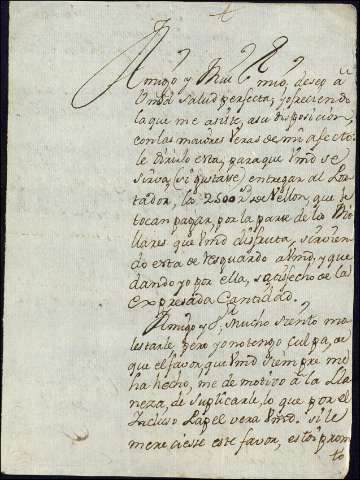 Amigo y Mui S.r mio, deseo a
Vmd salud perfecta, y ofreciendo
la que me asiste, a su disposicion,
con las maiores veras de mi afecto,
le dirijo esta, para que Vmd se
sirva (si gustase) entregar al Por=
tador, los 2500 r.s de Vellon, que le
tocan pagar, por la parte de los Mi=
llares que Vmd disfruta, sirvien=
do esta de resguardo a Vmd, y que
dando yo por ella, satisfecho de la
expresada Cantidad.
Amigo y S.r, Mucho siento mo=
lestarle, pero yo no tengo culpa, de
que el favor, que Vmd siempre me
ha hecho, me de motivo a la Lla=
neza, de suplicarle, lo que por el
Incluso Papel vera Vmd. si le
mereciese este favor, estoi promp
to